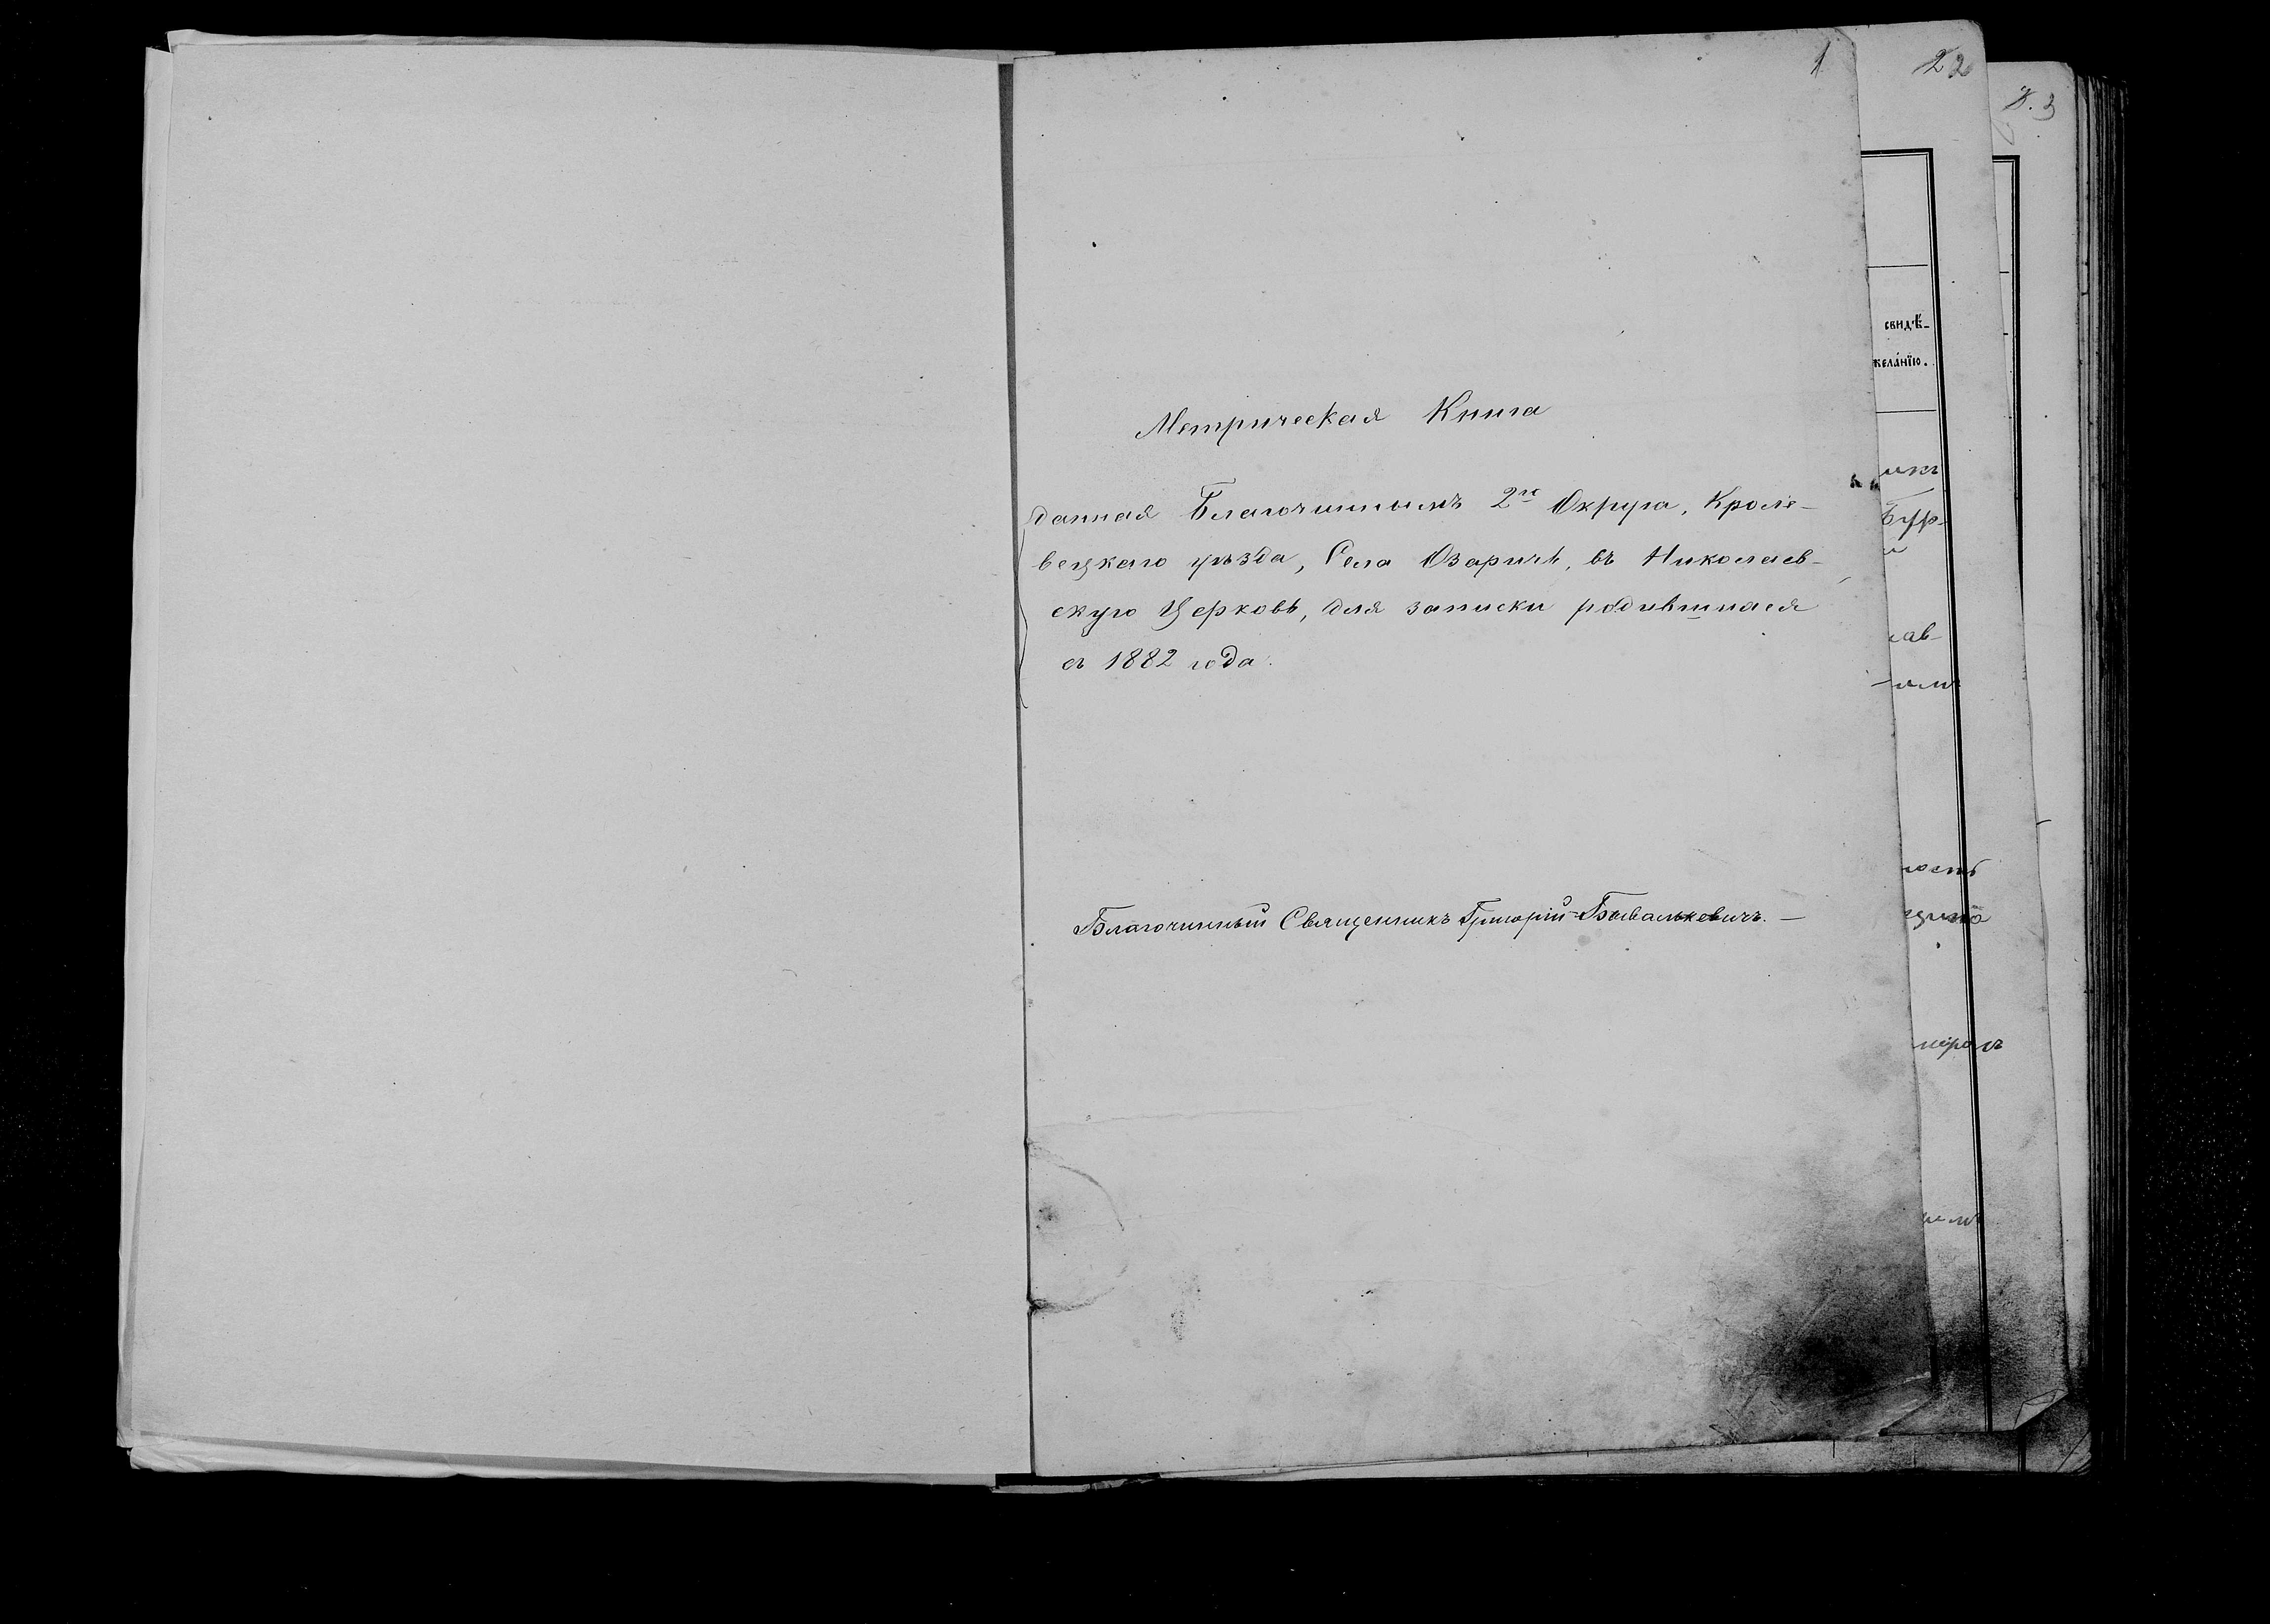 1
22
3
свидѣ-
желанїю.
Метрическая Книга
данная Благочиннымъ 2го Округа, Кроле-
вецкаго уѣзда, Села Озаричъ, въ Николаев-
скую Церковь, для записки родившихся
съ 1882 года.
Благочинный Священникъ Григорій Бывалькевичъ. —